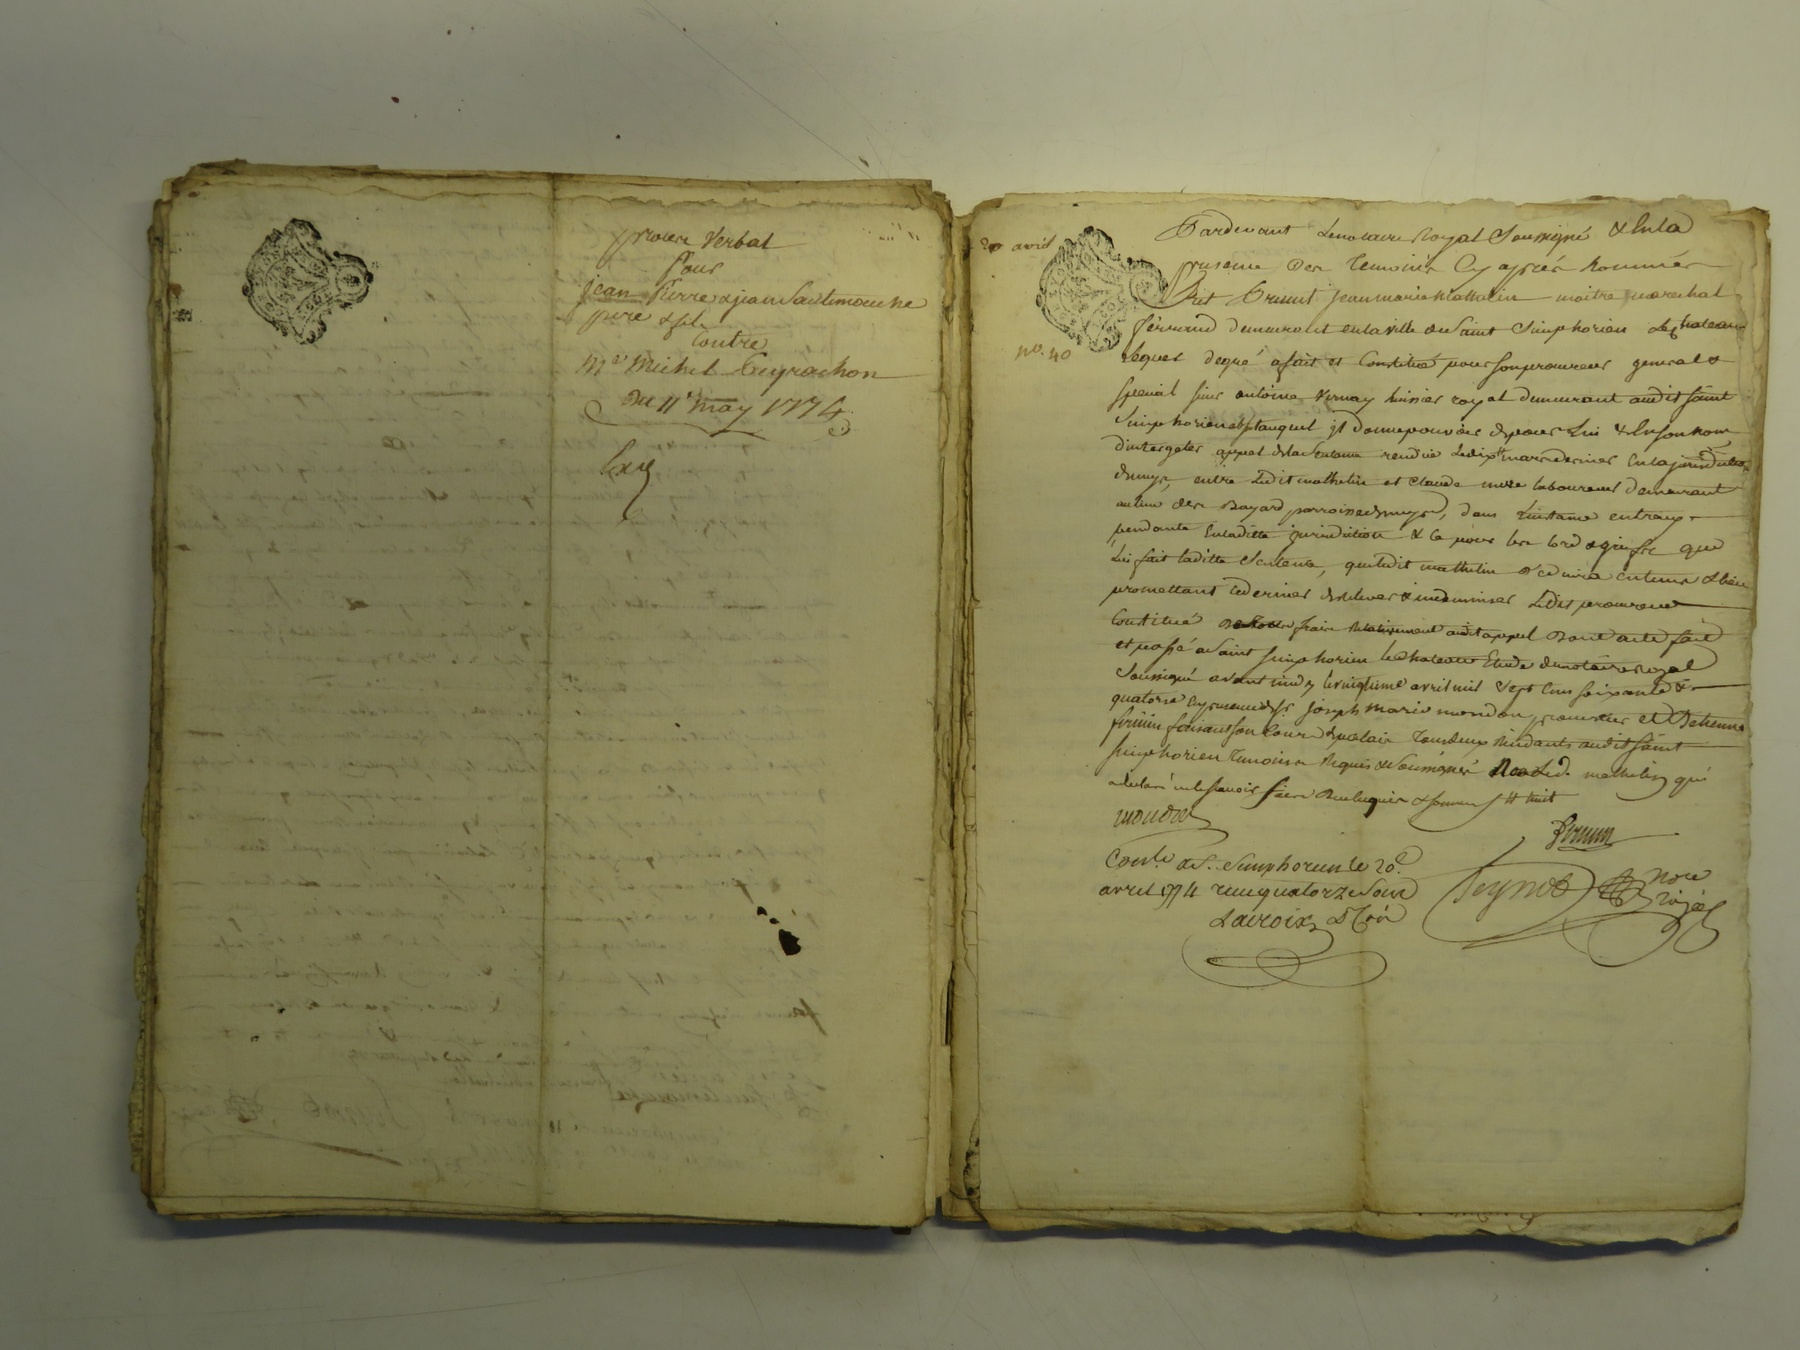 procex Verbal
Pour
jean Pierre & jean Sautemouche
pere & fils
Contre
Me Michel Teyrachon
Du 11e may 1774
Exp
20 avril
no. 40
Pardevant Le notaire Royal Soussigné & En la
presence Des temoins Cy après Nommés
fut Present jean marie Mathelin maitre marechal
férrand demeurant en la ville de Saint Simphorien Le chateau
Lequel de gré a fait et Constitué pour son procureur general &
special sieur antoine Vernay huissier royal demeurant audit saint
Simphorien auquel il donne pouvoir de pour Lui & En son nom
d'interjeter appel de la Sentence rendüe Le dix sept mars dernier En la jurisdiction
entre Ledit mathelin et Claude laboureur demeurant
au lieu des Bayard parroisse dans L'instance entr'eux
pendante En laditte jurisdiction & Ce pour les tord & griefs que
Lui fait laditte Sentence, que ledit mathelin Deduira en tems & lieu
promettant Ce dernier de relever & indemniser Ledit procureur
Constitué De tous frais Relativement audit appel Dont acte fait
et passé a Saint Simphorien le chateau Etude du notaire Royal
Soussigné avant midy Le vingtieme avril mil Sept Cens soixante &
quatorze En presence de Sr joseph Marie mondon et Etienne
firmin faisant son Cours de tous deux Residants audit saint
Simphorien Temoins Requis & Soussignés Non Led. mathelin qui
a declaré ne le sçavoir faire De ce Enquis & sommé
mondon
firmin
Conlé a S. Simphorien le 20e
avril 1774 reçu quatorze sous
Lacroix
Peyrot Nore
Royal